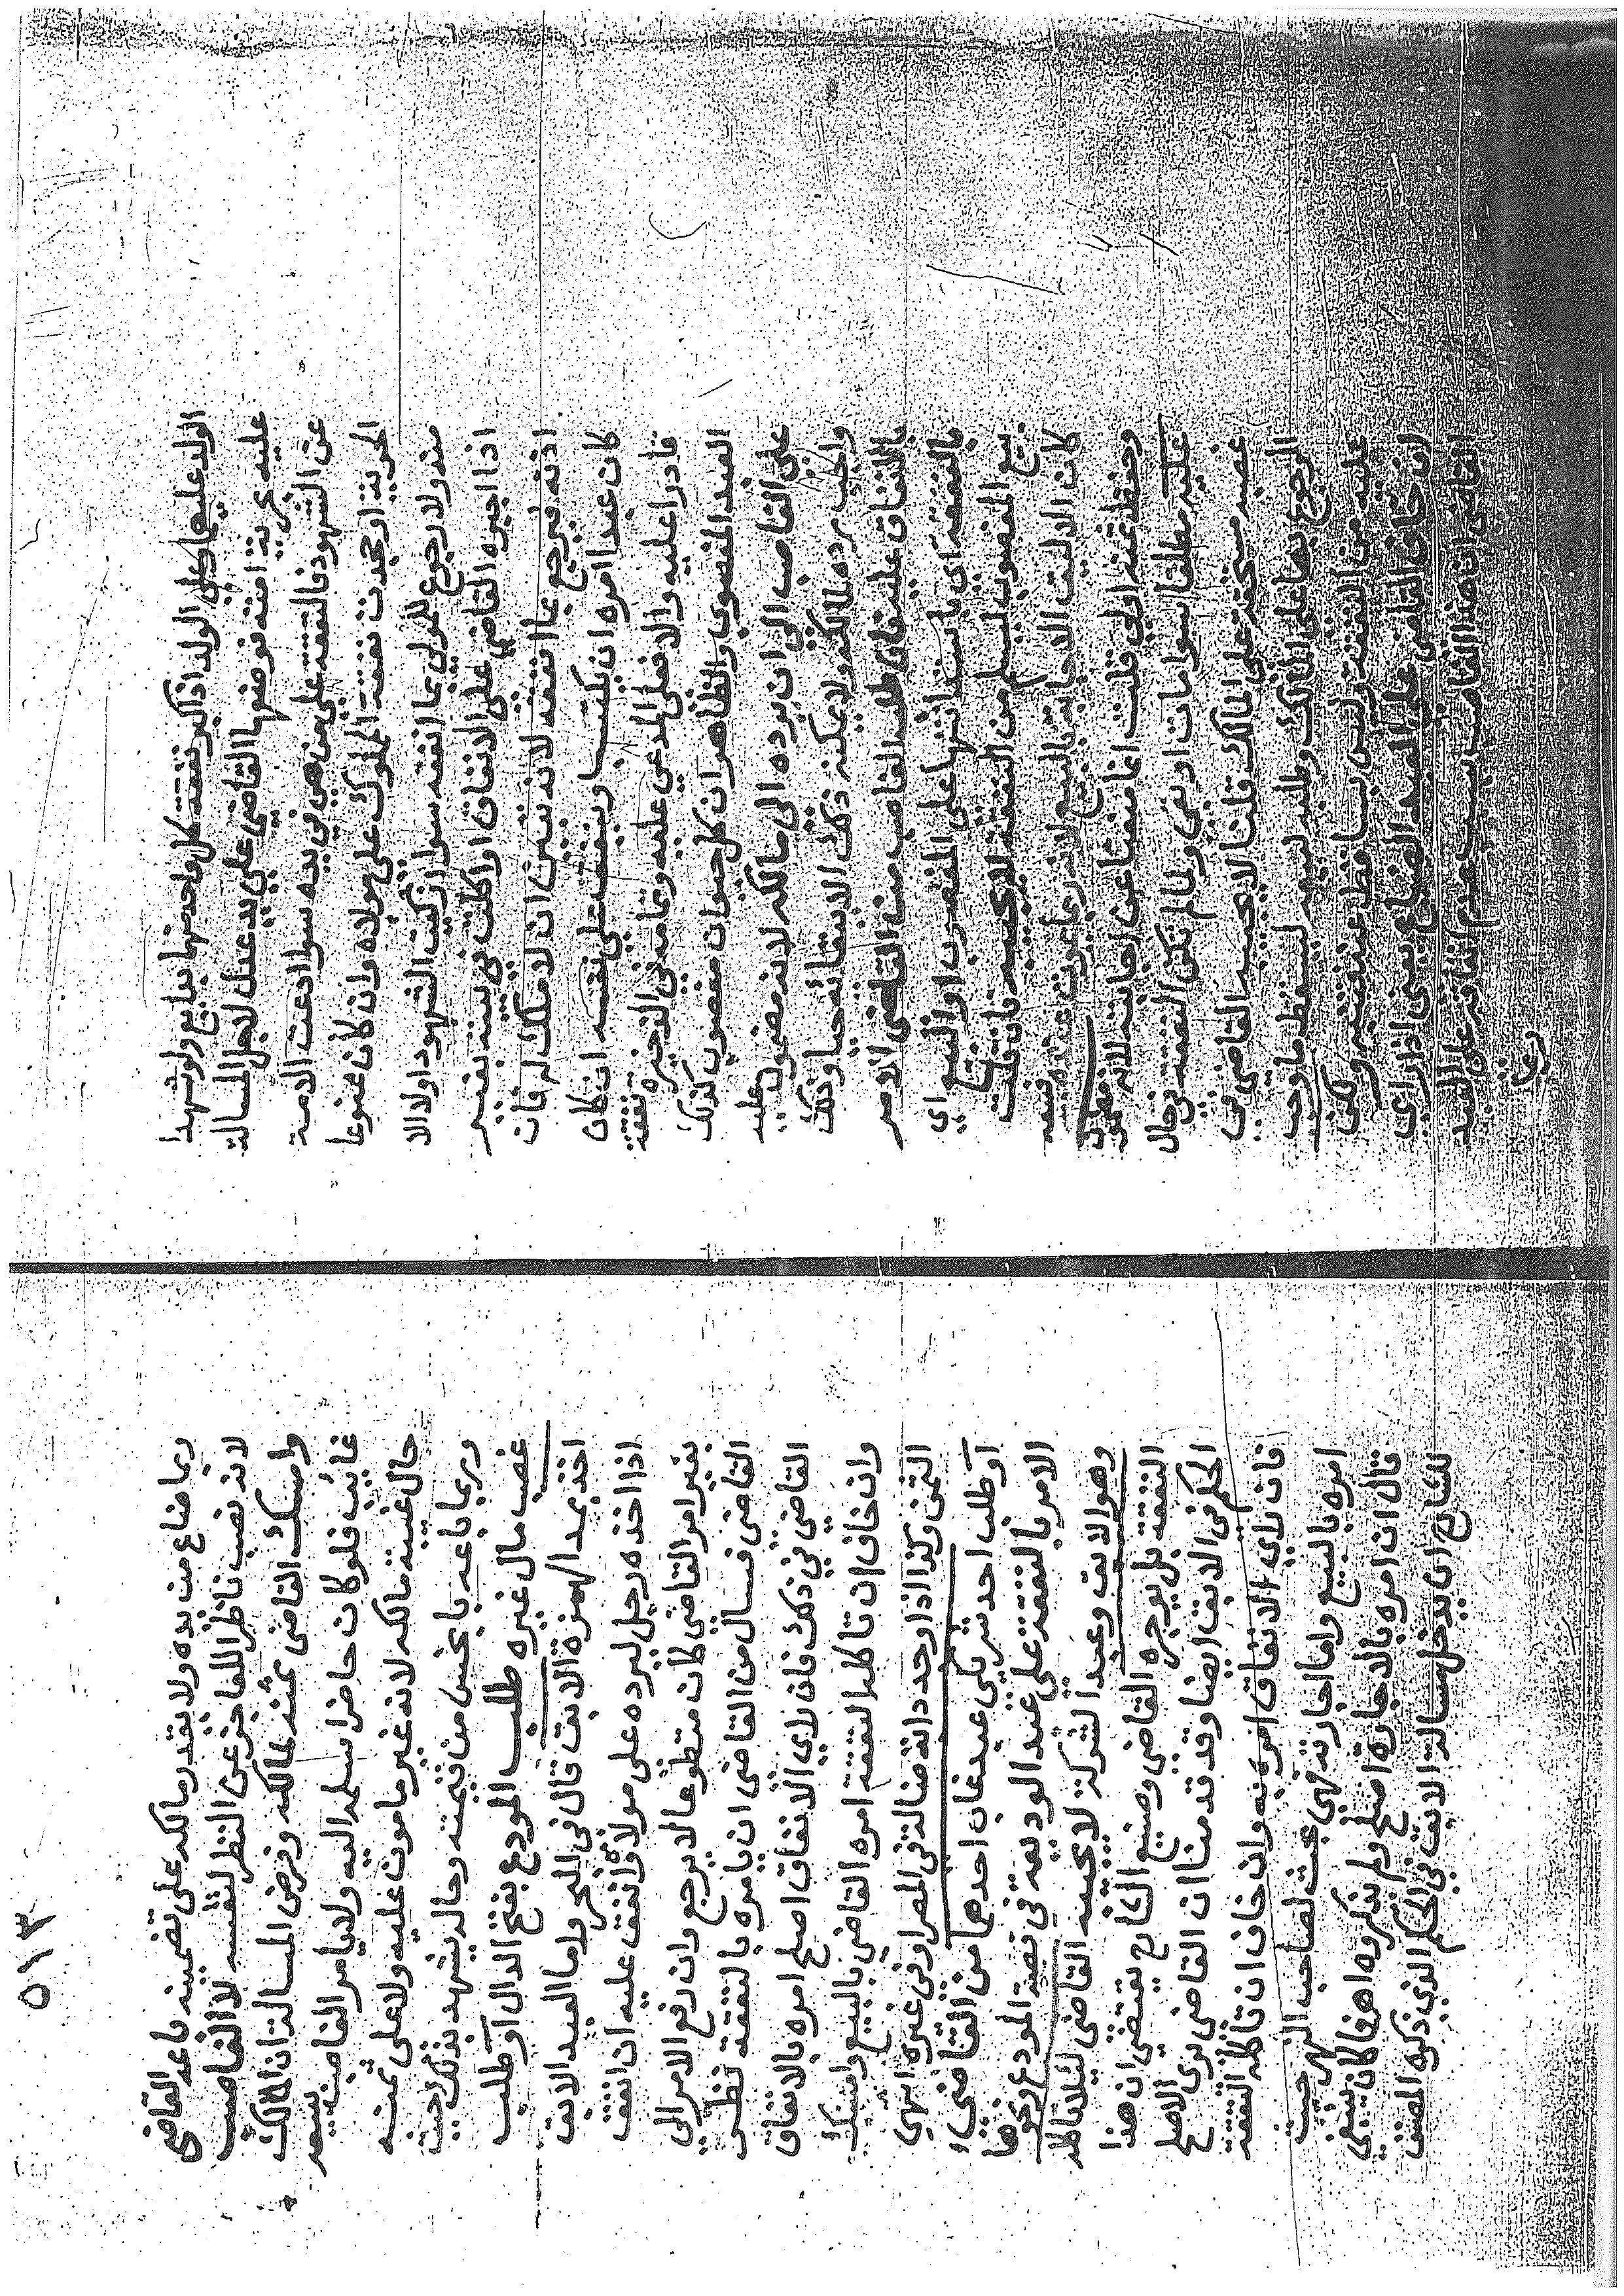 الولد عليها وعلي الولد اذا كبر نفقته كل واحد منهما بدايع ولو شهدا
عليه بحرية امته فوضعها القاضي علي يد عدل لاجل المسالة
عن الشهود فالنفقة علي من هي في يده سوا ادعت الامة
الحرية او جحدت نفقة المملوك علي مولاه وان كان ممنوعا
منه ولا رجوع للمولي بما انفقه سوا زكيت الشهود اولا الا
اذا اجبره القاضي علي الانفاق او اكلت في بيته بغير
اذنه فيرجع بما انفقه لانه تبين ان لا ملك له فان
كان عبدا امره ان يكتسب وينفق علي نفسه ان كان
قادرا عليه والا فعلي المدعي عليه وتمامه في الذخيرة نفقة
العبد المغصوب والظاهر ان كل حيوان مغصوب كذلك
علي الغاصب الي ان يرده الي مالكه لانه مضمون عليه
واجب رده لمالكه ولا يمكنه ذلك الا بابقائه حيا وذلك
بالانفاق عليه فان طلب الغاصب من القاضي الامر
بالنفقة اي باستدانتها علي المغصوب او البيع اي
بيع المغصوب ليسلم من النفقة لا يجيبه فان قلت
كان الاليق الاجابة بالبيع لانه ربما يموت عنده فبيعه
وحفظ ثمنه اولي قلت انما منعنا عن اجابته لانه مضمون
عليه مطلقا سوا مات او بقي ولما لم تكن النفقة في حال
غصبه مستحقة علي المالك قلنا لا يجيبه القاضي في
الرجوع بها علي المالك وطلبه لبيعه ليسقط ما وجب
عليه من النفقة وليس بساقط عنه فبيعه ولكن
ان خاف القاضي علي العبد الضياع يعني اذا راي
القاضي ان هذا الغاصب بسبب عدم انفاقه علي العبد
ربما
٥١٣
ربما ضاع من يده ولا يقدر مالكه علي تضمينه باعه القاضي
لانه نصب ناظرا للعاجز عن النظر لنفسه لا الغاصب
وامسك القاضي ثمنه لمالكه وفرض المسالة ان المالك
غائب فلو كان حاضرا سلمه اليه ولا يامر الغاصب ببيعه
حال غيبة مالكه لانه غير مامون عليه ولا علي ثمنه
وربما باعه بابخس من قيمته وحاله يشهد بذلك حيث
غصب مال غيره طلب المودع بفتح الدال او طلب
اخذ بمد الهمزة الابق قال في البحر واما العبد الابق
اذا اخذه رجل ليرده علي مولاه وانفق عليه ان انفق
بغير امر القاضي كان متطوعا لا يرجع وان رفع الامر الي
القاضي فسال من القاضي ان يامره بالنفقة نظر
القاضي في ذلك فان راي الانفاق اصلح امره بالانفاق
وان خاف ان تاكله النفقة امره القاضي بالبيع وامسك
الثمن وكذا اذا وجد دابة ضالة في المصر او في غيره انتهي
او طلب احد شريكي عبد غاب احدهما من القاضي
الامر بالنفقة علي عبد الوديعة في قصة المودع ونحوها
وهو الابق وعبد الشركة لا يجيبه القاضي لئلا تاكله
النفقة بل يوجره القاضي وصنيع الشارح يقتضي ان هذا
الحكم في الابق ايضا وقد قدمنا ان القاضي يري الاصلح
فان راي الانفاق امره به وان خاف ان تاكله النفقة
امره بالبيع واما اجارته فهي بحث لصاحب النهر حيث
قال ان امره بالاجارة اصلح ولم يذكروه اهـ فكان ينبغي
للشارح ان يدخل مسالة الابق في الحكم الذي ذكره المصنف